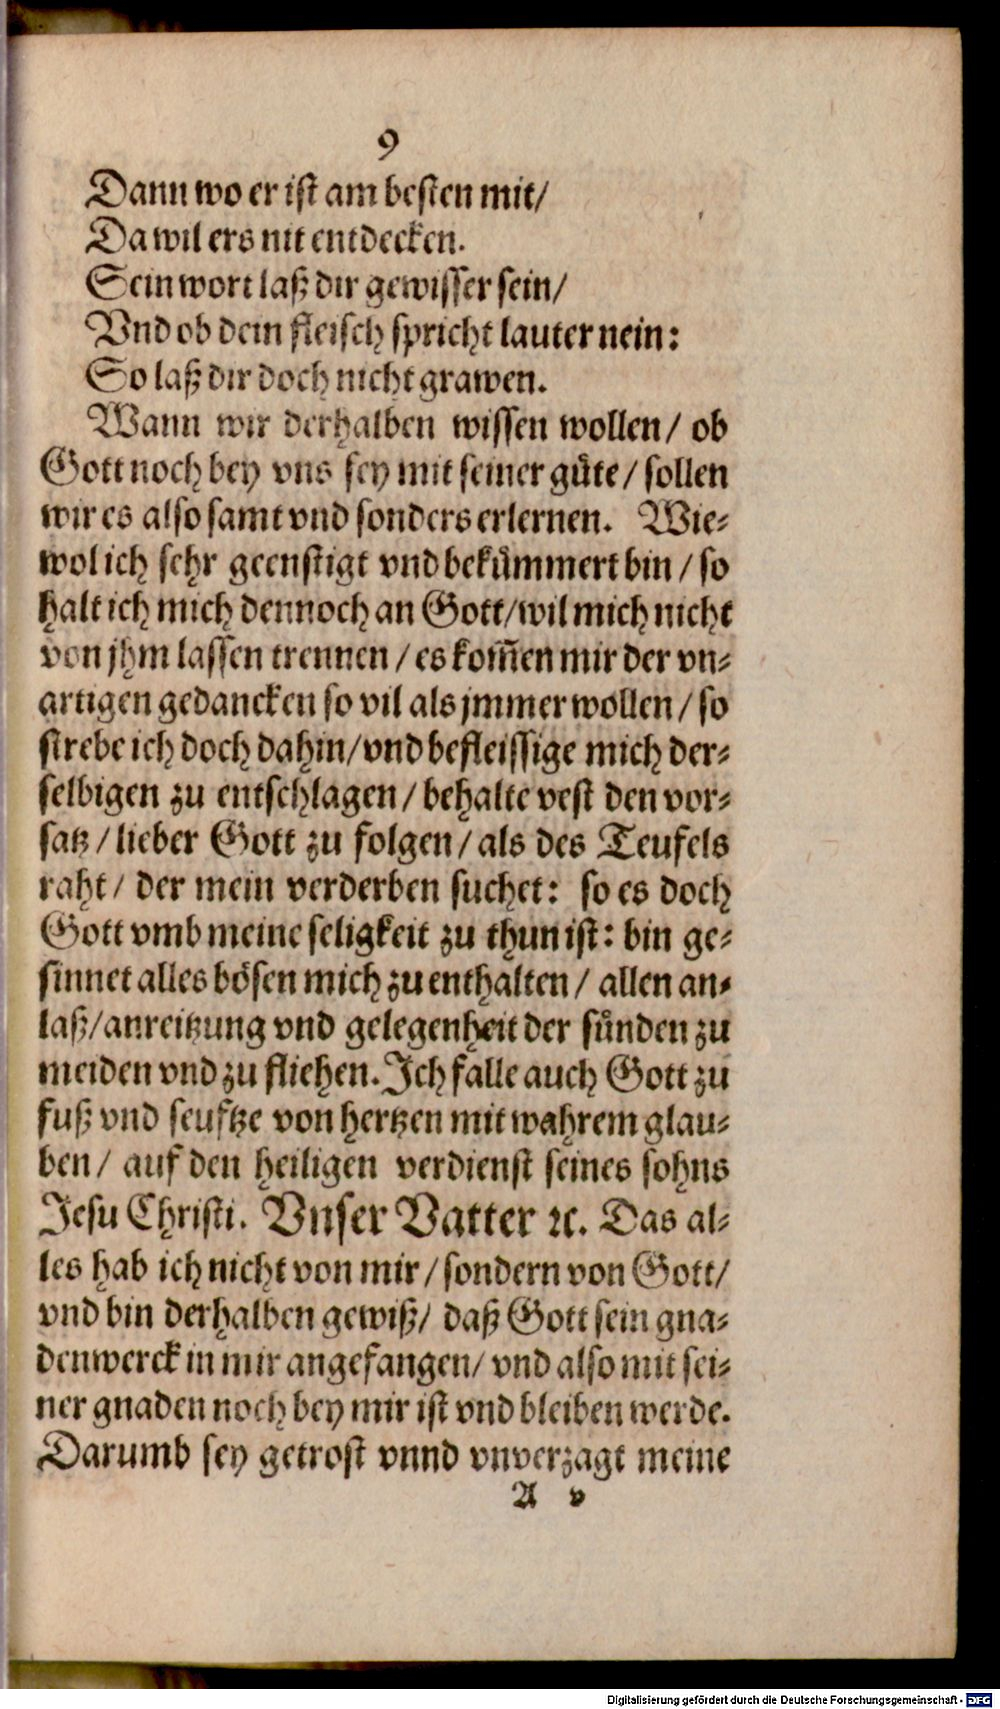 9
Dann wo er ist am besten mit/
Da wil ers nit entdecken.
Sein wort laß dir gewisser sein/
Vnd ob dein fleisch spricht lauter nein:
So laß dir doch nicht grawen.
Wann wir derhalben wissen wollen/ ob
Gott noch bey vns sey mit seiner güte/ sollen
wir es also samt vnd sonders erlernen. Wie-
wol ich sehr geenstigt vnd bekümmert bin/ so
halt ich mich dennoch an Gott/ wil mich nicht
von jhm lassen trennen/ es kom̃en mir der vn-
artigen gedancken so vil als jmmer wollen/ so
strebe ich doch dahin/ vnd befleissige mich der-
selbigen zu entschlagen/ behalte vest den vor-
satz/ lieber Gott zu folgen/ als des Teufels
raht/ der mein verderben suchet: so es doch
Gott vmb meine seligkeit zu thun ist: bin ge-
sinnet alles bösen mich zu enthalten/ allen an-
laß/ anreitzung vnd gelegenheit der sünden zu
meiden vnd zu fliehen. Ich falle auch Gott zu
fuß vnd seuftze von hertzen mit wahrem glau-
ben/ auf den heiligen verdienst seines sohns
Jesu Christi. Vnser Vatter ꝛc. Das al-
les hab ich nicht von mir/ sondern von Gott/
vnd bin derhalben gewiß/ daß Gott sein gna-
denwerck in mir angefangen/ vnd also mit sei-
ner gnaden noch bey mir ist vnd bleiben werde.
Darumb sey getrost vnnd vnverzagt meine
A v
Digitalisierung gefördert durch die Deutsche Forschungsgemeinschaft - DFG